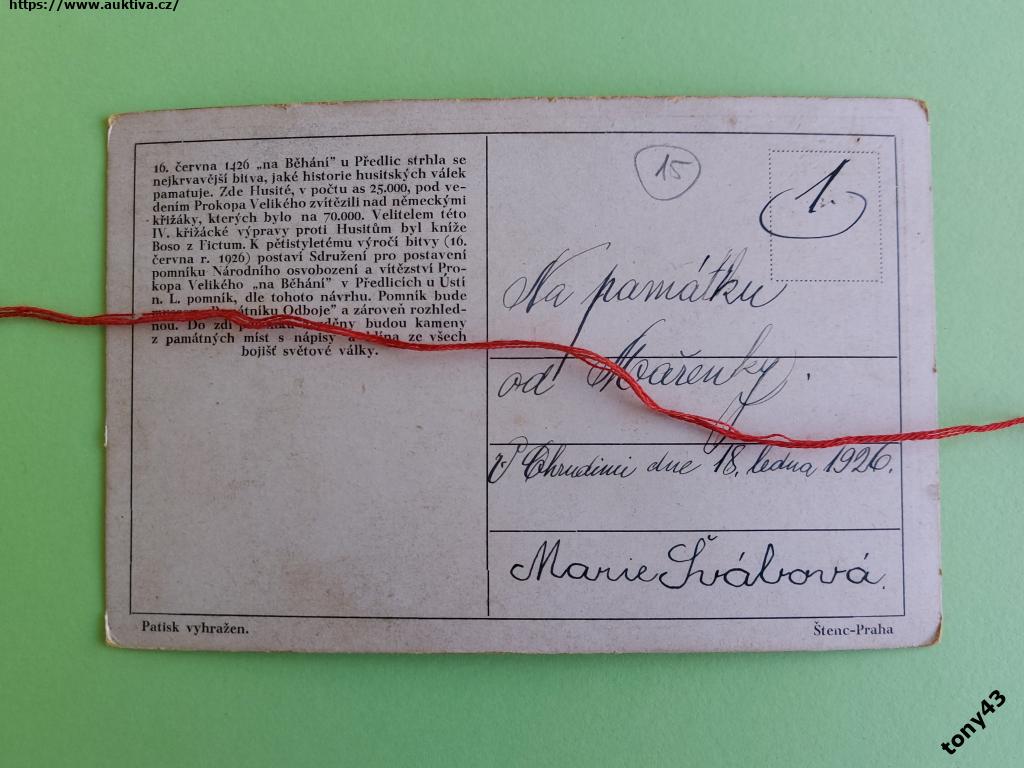 https://www.auktiva.cz/
16. června 1426 „na Běhání” u Předlic strhla se
nejkrvavější bitva, jaké historie husitských válek
pamatuje. Zde Husité, v počtu as 25.000, pod ve-
dením Prokopa Velikého zvítězili nad německými
křižáky, kterých bylo na 70.000. Velitelem této
IV. křižácké výpravy proti Husitům byl kníže
Boso z Fictum. K pětistyletému výročí bitvy (16.
června r. 1926) postaví Sdružení pro postavení
pomníku Národního osvobození a vítězství Pro-
kopa Velikého „na Běhání” v Předlicích u Ústí
n. L. pomník, dle tohoto návrhu. Pomník bude
Odboje” a zároveň rozhled-
nou. Do zdí budou kameny
z památných míst s nápisy a hlína ze všech
bojišť světové války.
15
1.
Na památku
od Mařenky.
V Chrudimi dne 18. ledna 1926.
Marie Švábová.
Patisk vyhražen.
Štenc-Praha
tony43